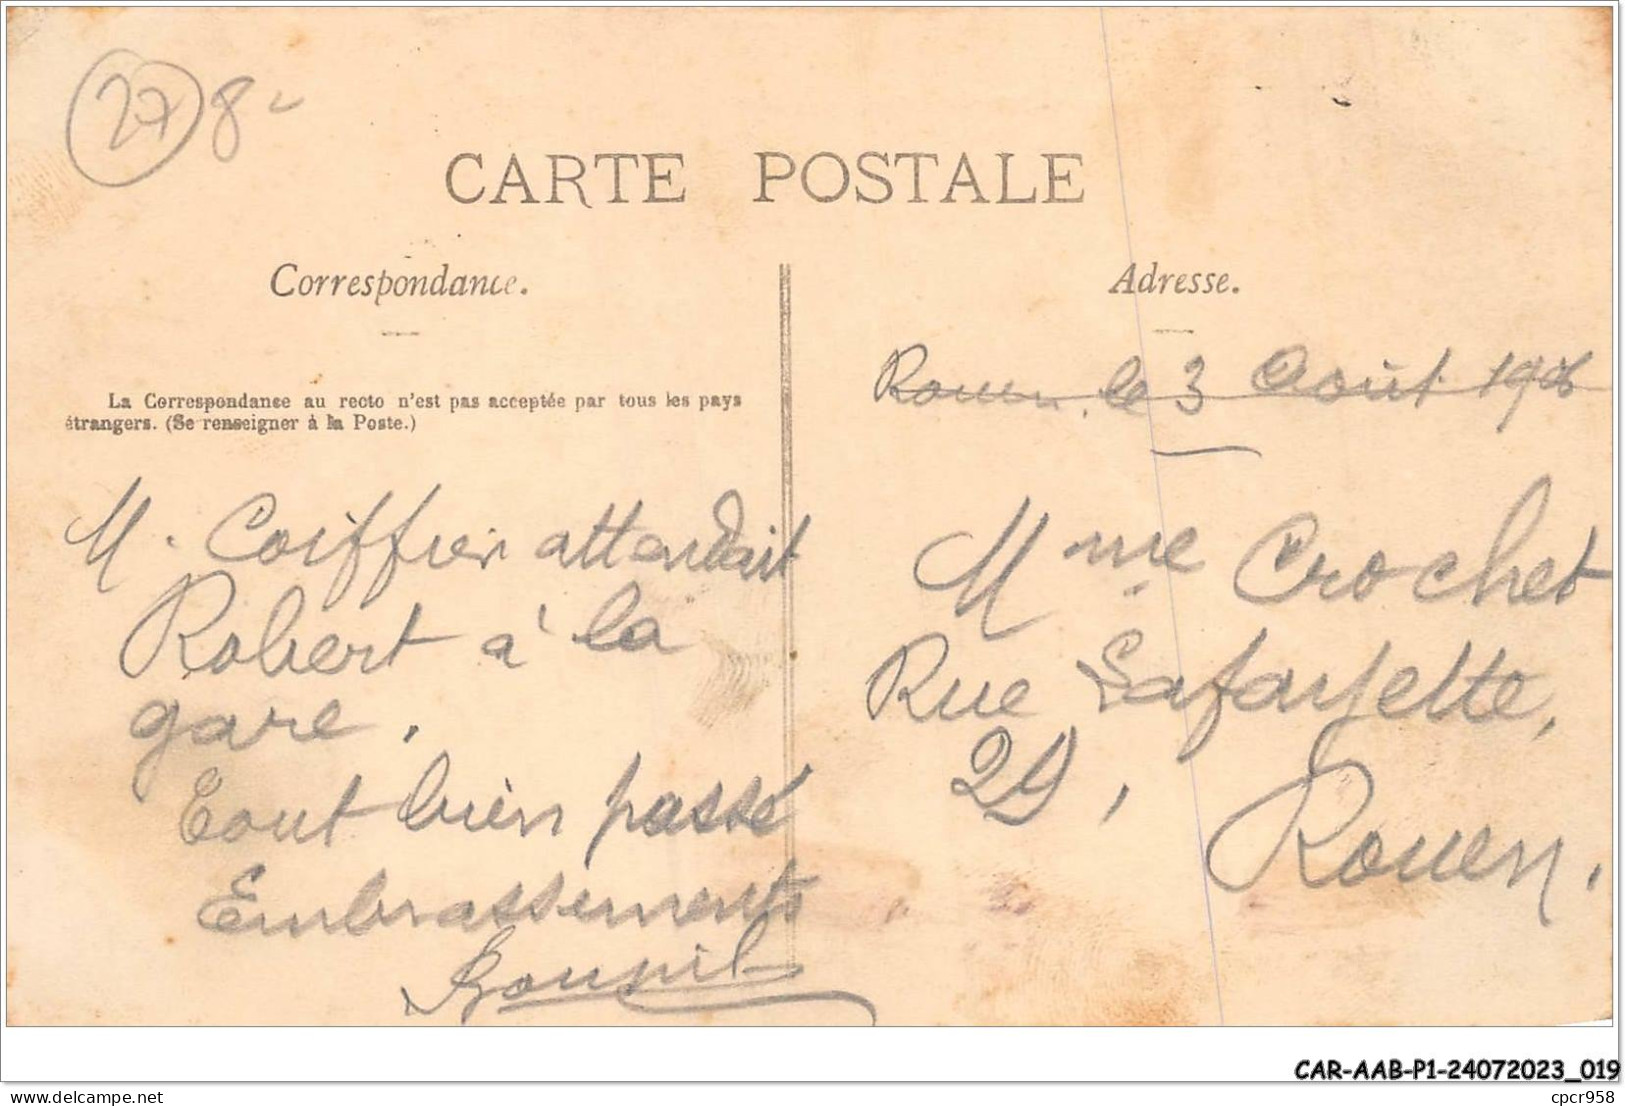 27 8-
CARTE POSTALE
Correspondance.
La Correspondance au recto n'est pas acceptée par tous les pays
étrangers. (Se renseigner à la Poste.)
M. Coiffier attendait
Robert à la
gare.
Tout bien passé
Embrassements
Adresse.
Rouen, le 3 Août 1906
Mme Crochet
Rue Lafayette,
29,
Rouen.
CAR-AAB-P1-24072023_019
cpcr958